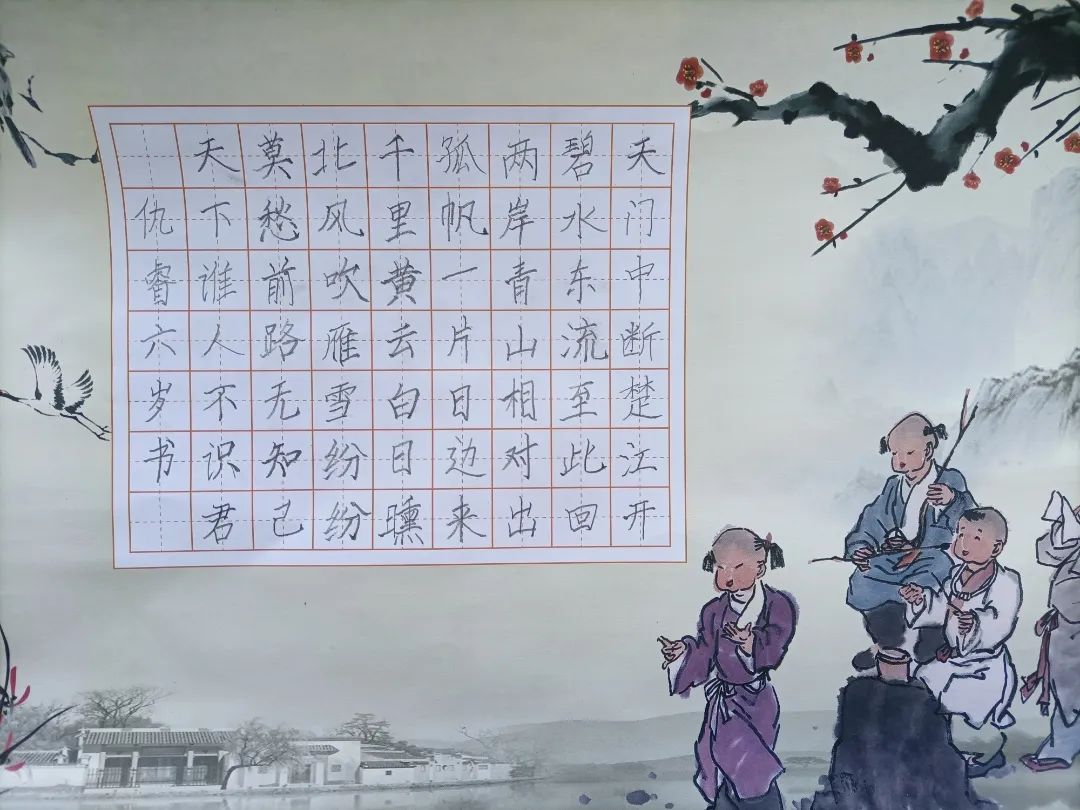 天门中断楚江开
碧水东流至此回
两岸青山相对出
孤帆一片日边来
千里黄云白日曛
北风吹雁雪纷纷
莫愁前路无知己
天下谁人不识君
仇睿六岁书